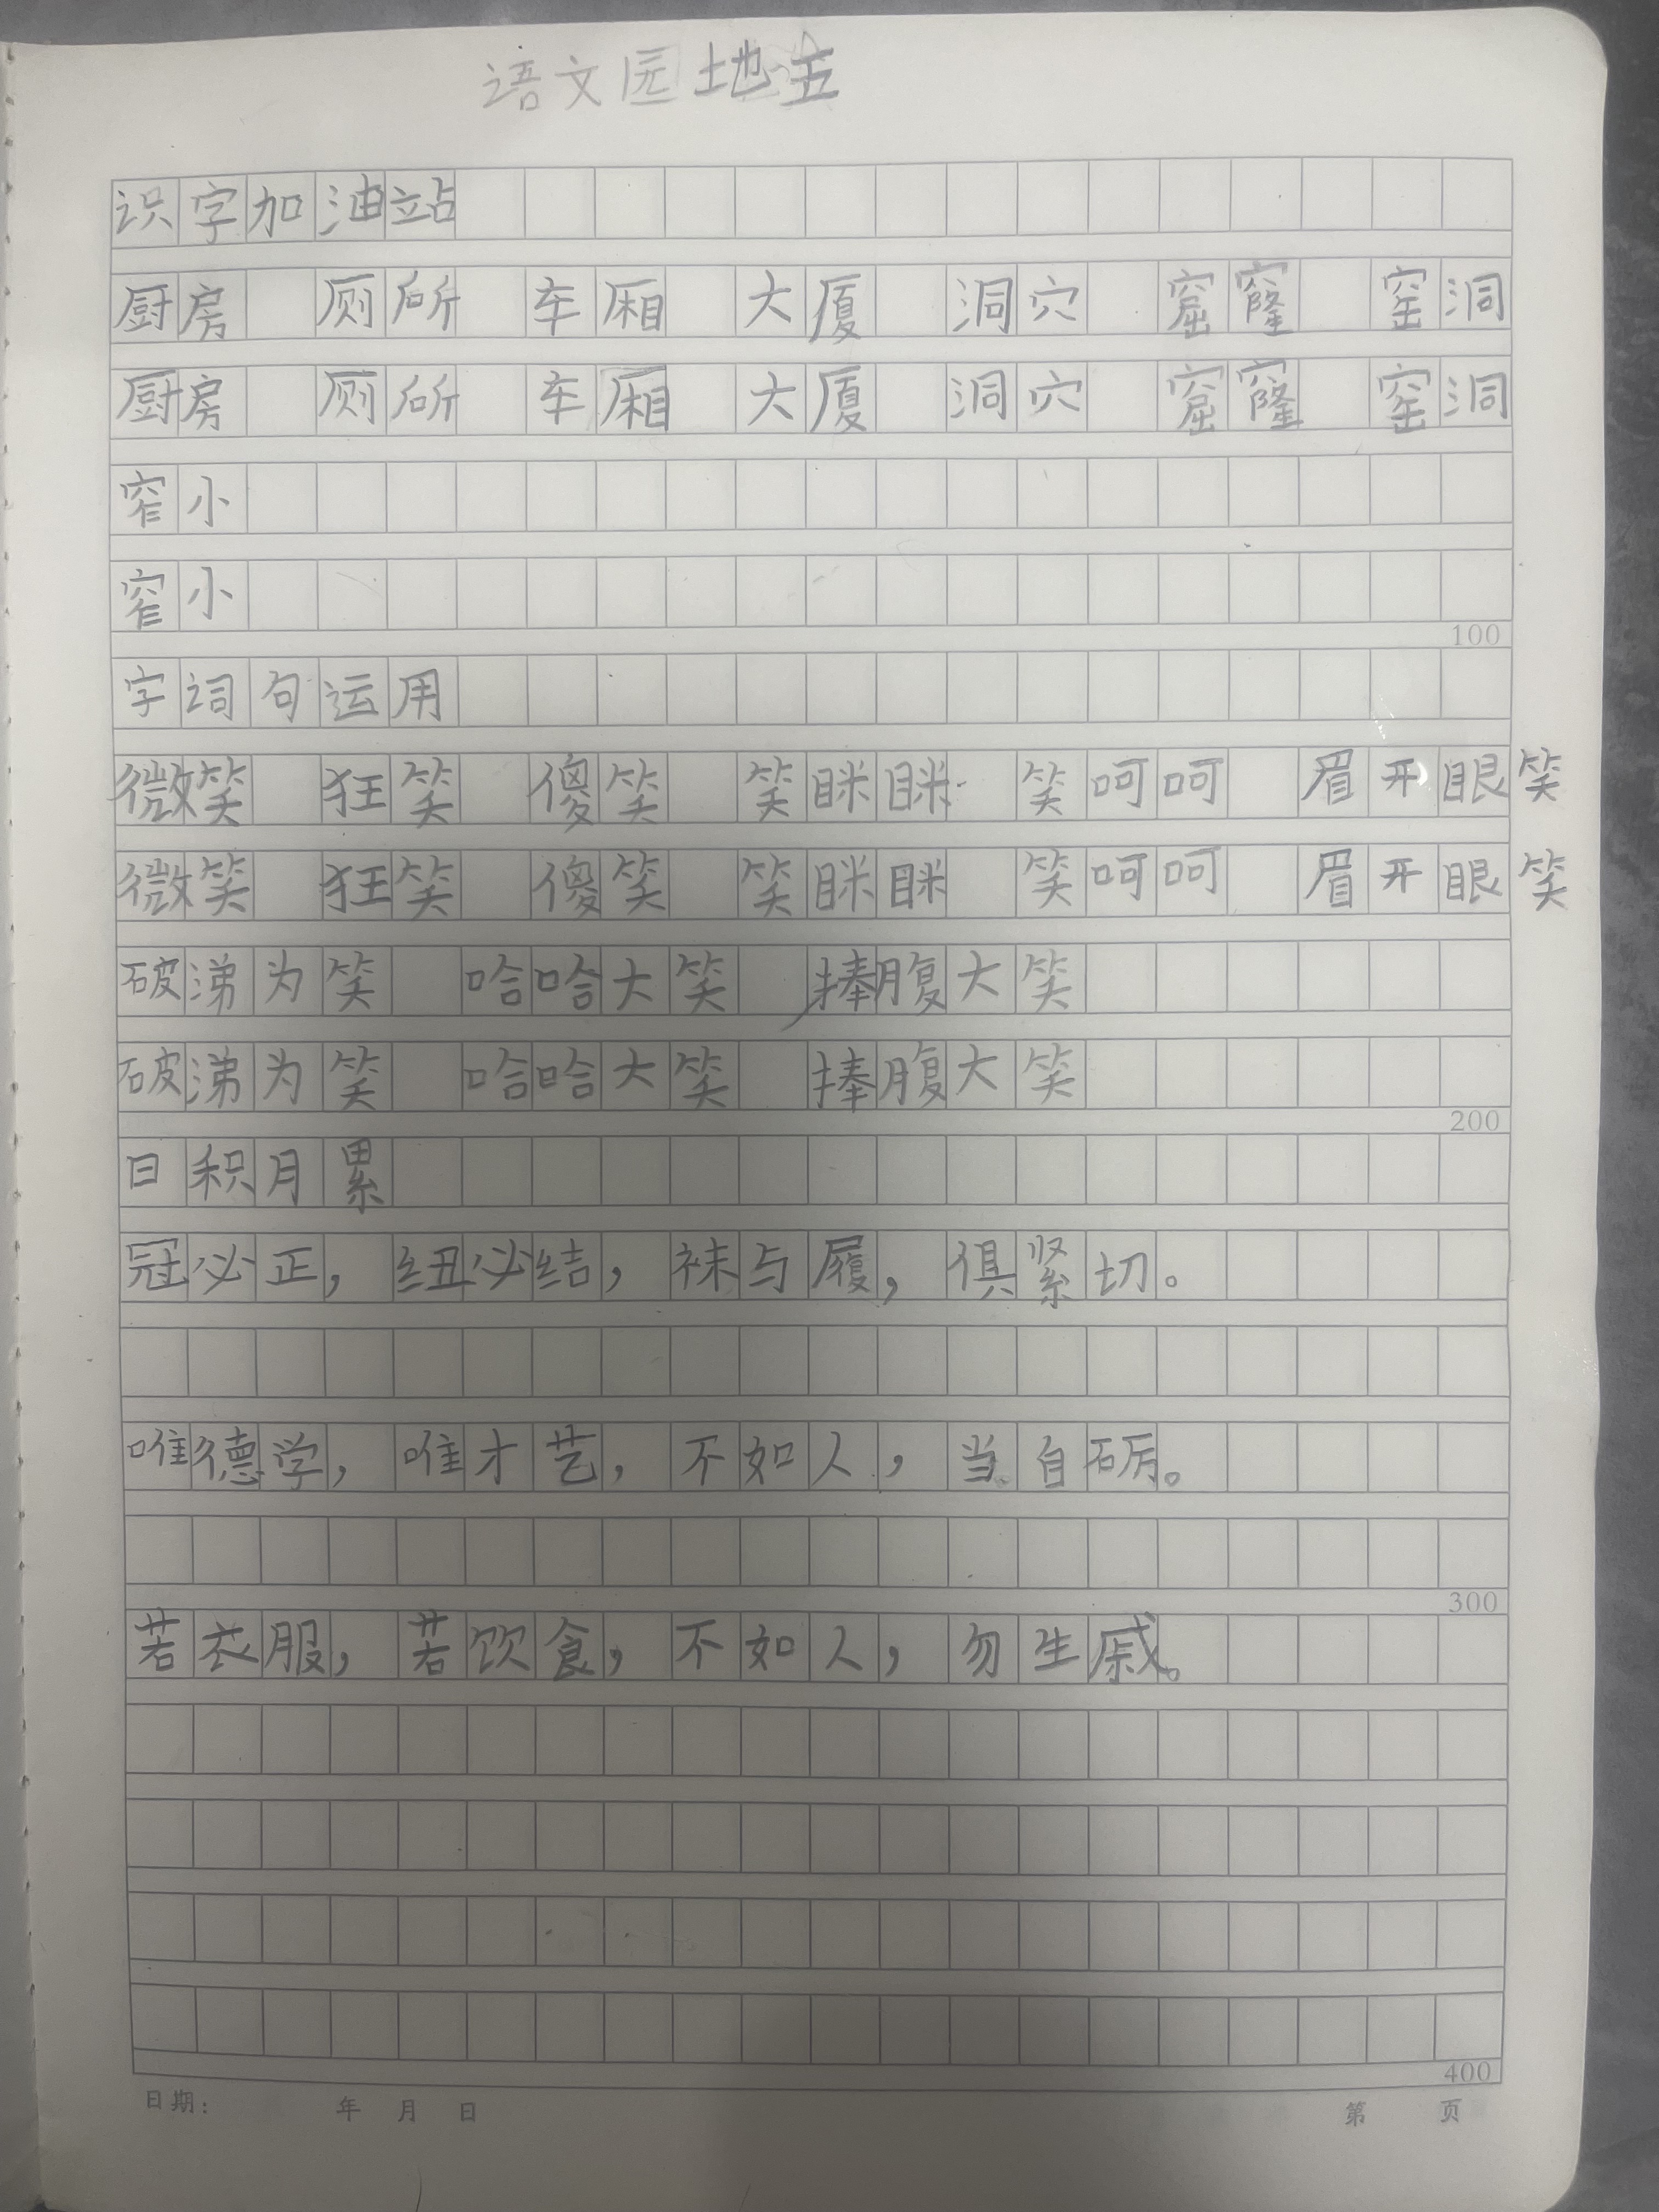 语文园地五
识字加油站
厨房 厕所 车厢 大厦 洞穴 窟窿 窑洞
厨房 厕所 车厢 大厦 洞穴 窟窿 窑洞
窄小
窄小
100
字词句运用
微笑 狂笑 傻笑 笑眯眯 笑呵呵 眉开眼笑
微笑 狂笑 傻笑 笑眯眯 笑呵呵 眉开眼笑
破涕为笑 哈哈大笑 捧腹大笑
破涕为笑 哈哈大笑 捧腹大笑
200
日积月累
冠必正，纽必结，袜与履，俱紧切。
唯德学，唯才艺，不如人，当自砺。
300
若衣服，若饮食，不如人，勿生戚。
400
日期： 年 月 日 第 页